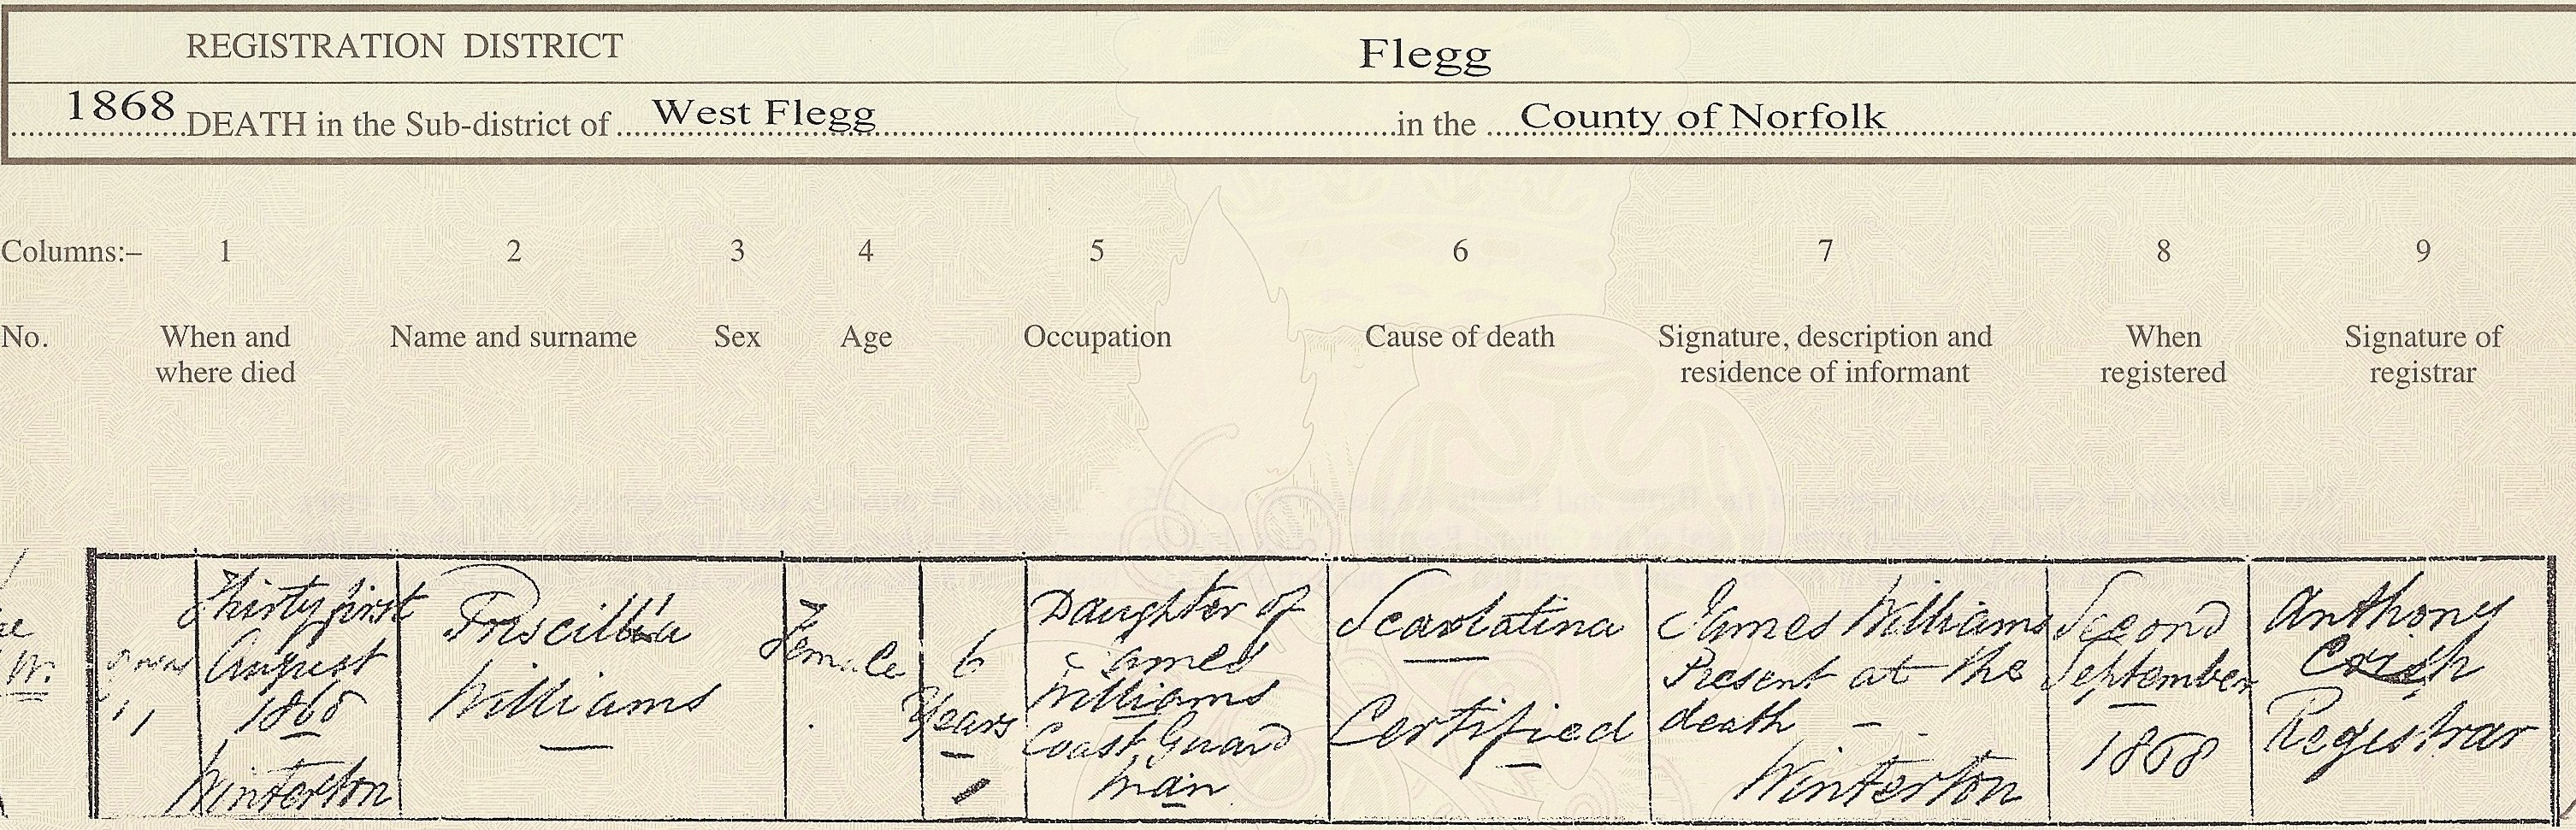 REGISTRATION DISTRICT Flegg
1868 DEATH in the Sub-district of West Flegg in the County of Norfolk
Columns:– 1 2 3 4 5 6 7 8 9
No. When and where died Name and surname Sex Age Occupation Cause of death Signature, description and residence of informant When registered Signature of registrar
Thirty first
August
1868
Winterton
Priscilla
Williams
Female
6
Years
Daughter of
James
Williams
Coast Guard
man
Scarlatina
Certified
James Williams
Present at the
death
Winterton
Second
September
1868
Anthony
Crisp
Registrar